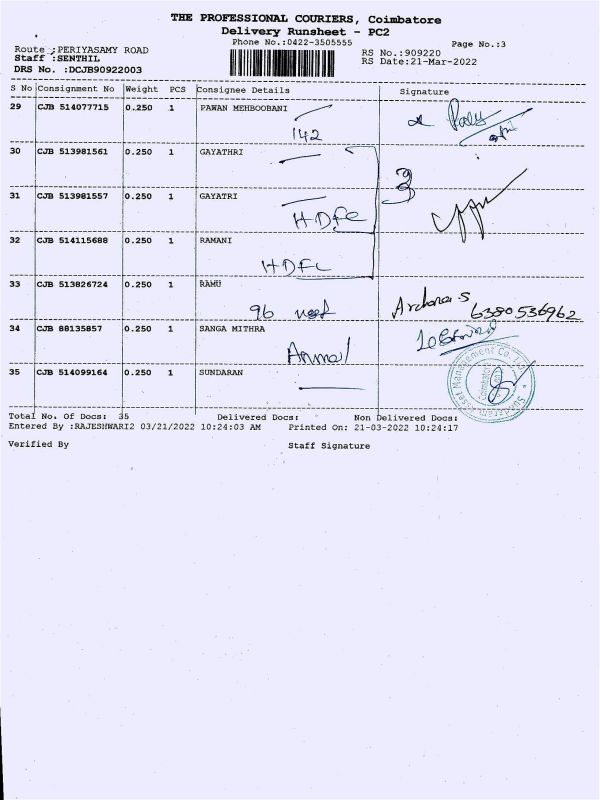 THE PROFESSIONAL COURIERS, Coimbatore
Delivery Runsheet - PC2
Phone No.:0422-3505555
Page No.:3
Route :PERIYASAMY ROAD
RS No.:909220
Staff :SENTHIL
RS Date:21-Mar-2022
DRS No. :DCJB90922003
S No Consignment No Weight PCS Consignee Details Signature
29 CJB 514077715 0.250 1 PAWAN MEHBOOBANI
142
30 CJB 513981561 0.250 1 GAYATHRI
3
31 CJB 513981557 0.250 1 GAYATRI
HDFC
32 CJB 514115688 0.250 1 RAMANI
HDFC
33 CJB 513826724 0.250 1 RAMU
96 Archana.S 6380536962
34 CJB 88135857 0.250 1 SANGA MITHRA
35 CJB 514099164 0.250 1 SUNDARAN
Total No. Of Docs: 35 Delivered Docs: Non Delivered Docs:
Entered By :RAJESHWARI2 03/21/2022 10:24:03 AM Printed On: 21-03-2022 10:24:17
Verified By Staff Signature